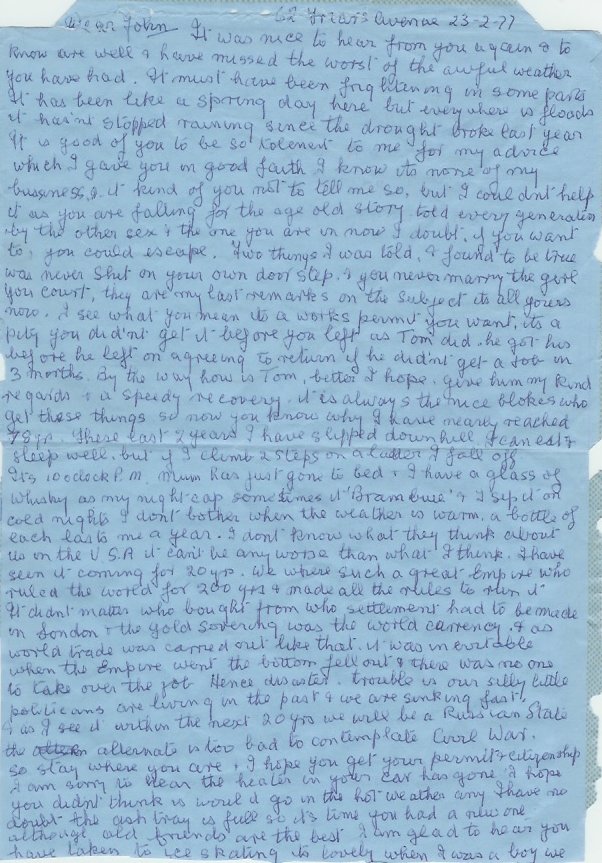 Dear John 62 Friars Avenue 23-2-77
It was nice to hear from you again & to
know are well & have missed the worst of the awful weather
you have had. It must have been frightening in some parts
It has been like a spring day here but everywhere is floods
it hasn't stopped raining since the drought broke last year
It is good of you to be so tolerent to me for my advice
which I gave you in good faith I know its none of my
bussiness, & it kind of you not to tell me so, but I couldn't help
it as you are falling for the age old story told every generation
by the other sex & the one you are in now I doubt, if you want
to, you could escape. Two things I was told, & found to be true
was never shit on your own door step. & you never marry the girl
you court, they are my last remarks on the subject its all yours
now. I see what you mean its a works permit you want, its a
pity you did'nt get it before you left as Tom did. he got his
before he left on agreeing to return if he did'nt get a job in
3 months. By the way how is Tom, better I hope, give him my kind
regards & a speedy recovery. it is always the nice blokes who
get these things so now you know why I have nearly reached
78 yrs. These last 2 years I have slipped down hill I can eat &
sleep well. but if I climb 2 steps on a ladder I fall off
It's 10 oclock P.M. Mum has just gone to bed & I have a glass of
whisky as my night cap sometimes it "Brambuie" & I sip it on
cold nights I dont bother when the weather is warm. a bottle of
each lasts me a year. I dont know what they think about
us in the U.S.A it cant be any worse than what I think. I have
seen it coming for 20 yrs. We where such a great Empire who
ruled the world for 200 yrs & made all the rules to run it
It didnt matter who bought from who settlement had to be made
in London & the gold sovering was the world currency. & as
world trade was carried out like that. it was inevitable
when the Empire went the bottom fell out & there was no one
to take over the job Hence disaster. trouble is our silly little
politicans are living in the past & we are sinking fast,
& as I see it within the next 20 yrs we will be a Russian State
the alternate is too bad to contemplate Civil War.
so stay where you are & I hope you get your permit & citizenship
I am sorry to hear the heater in your car has gone I hope
you didn't think is would go in the hot weather any I have no
doubt the ash tray is full so its time you had a new one
although old friends are the best I am glad to hear you
have taken to ice skating its lovely when I was a boy we